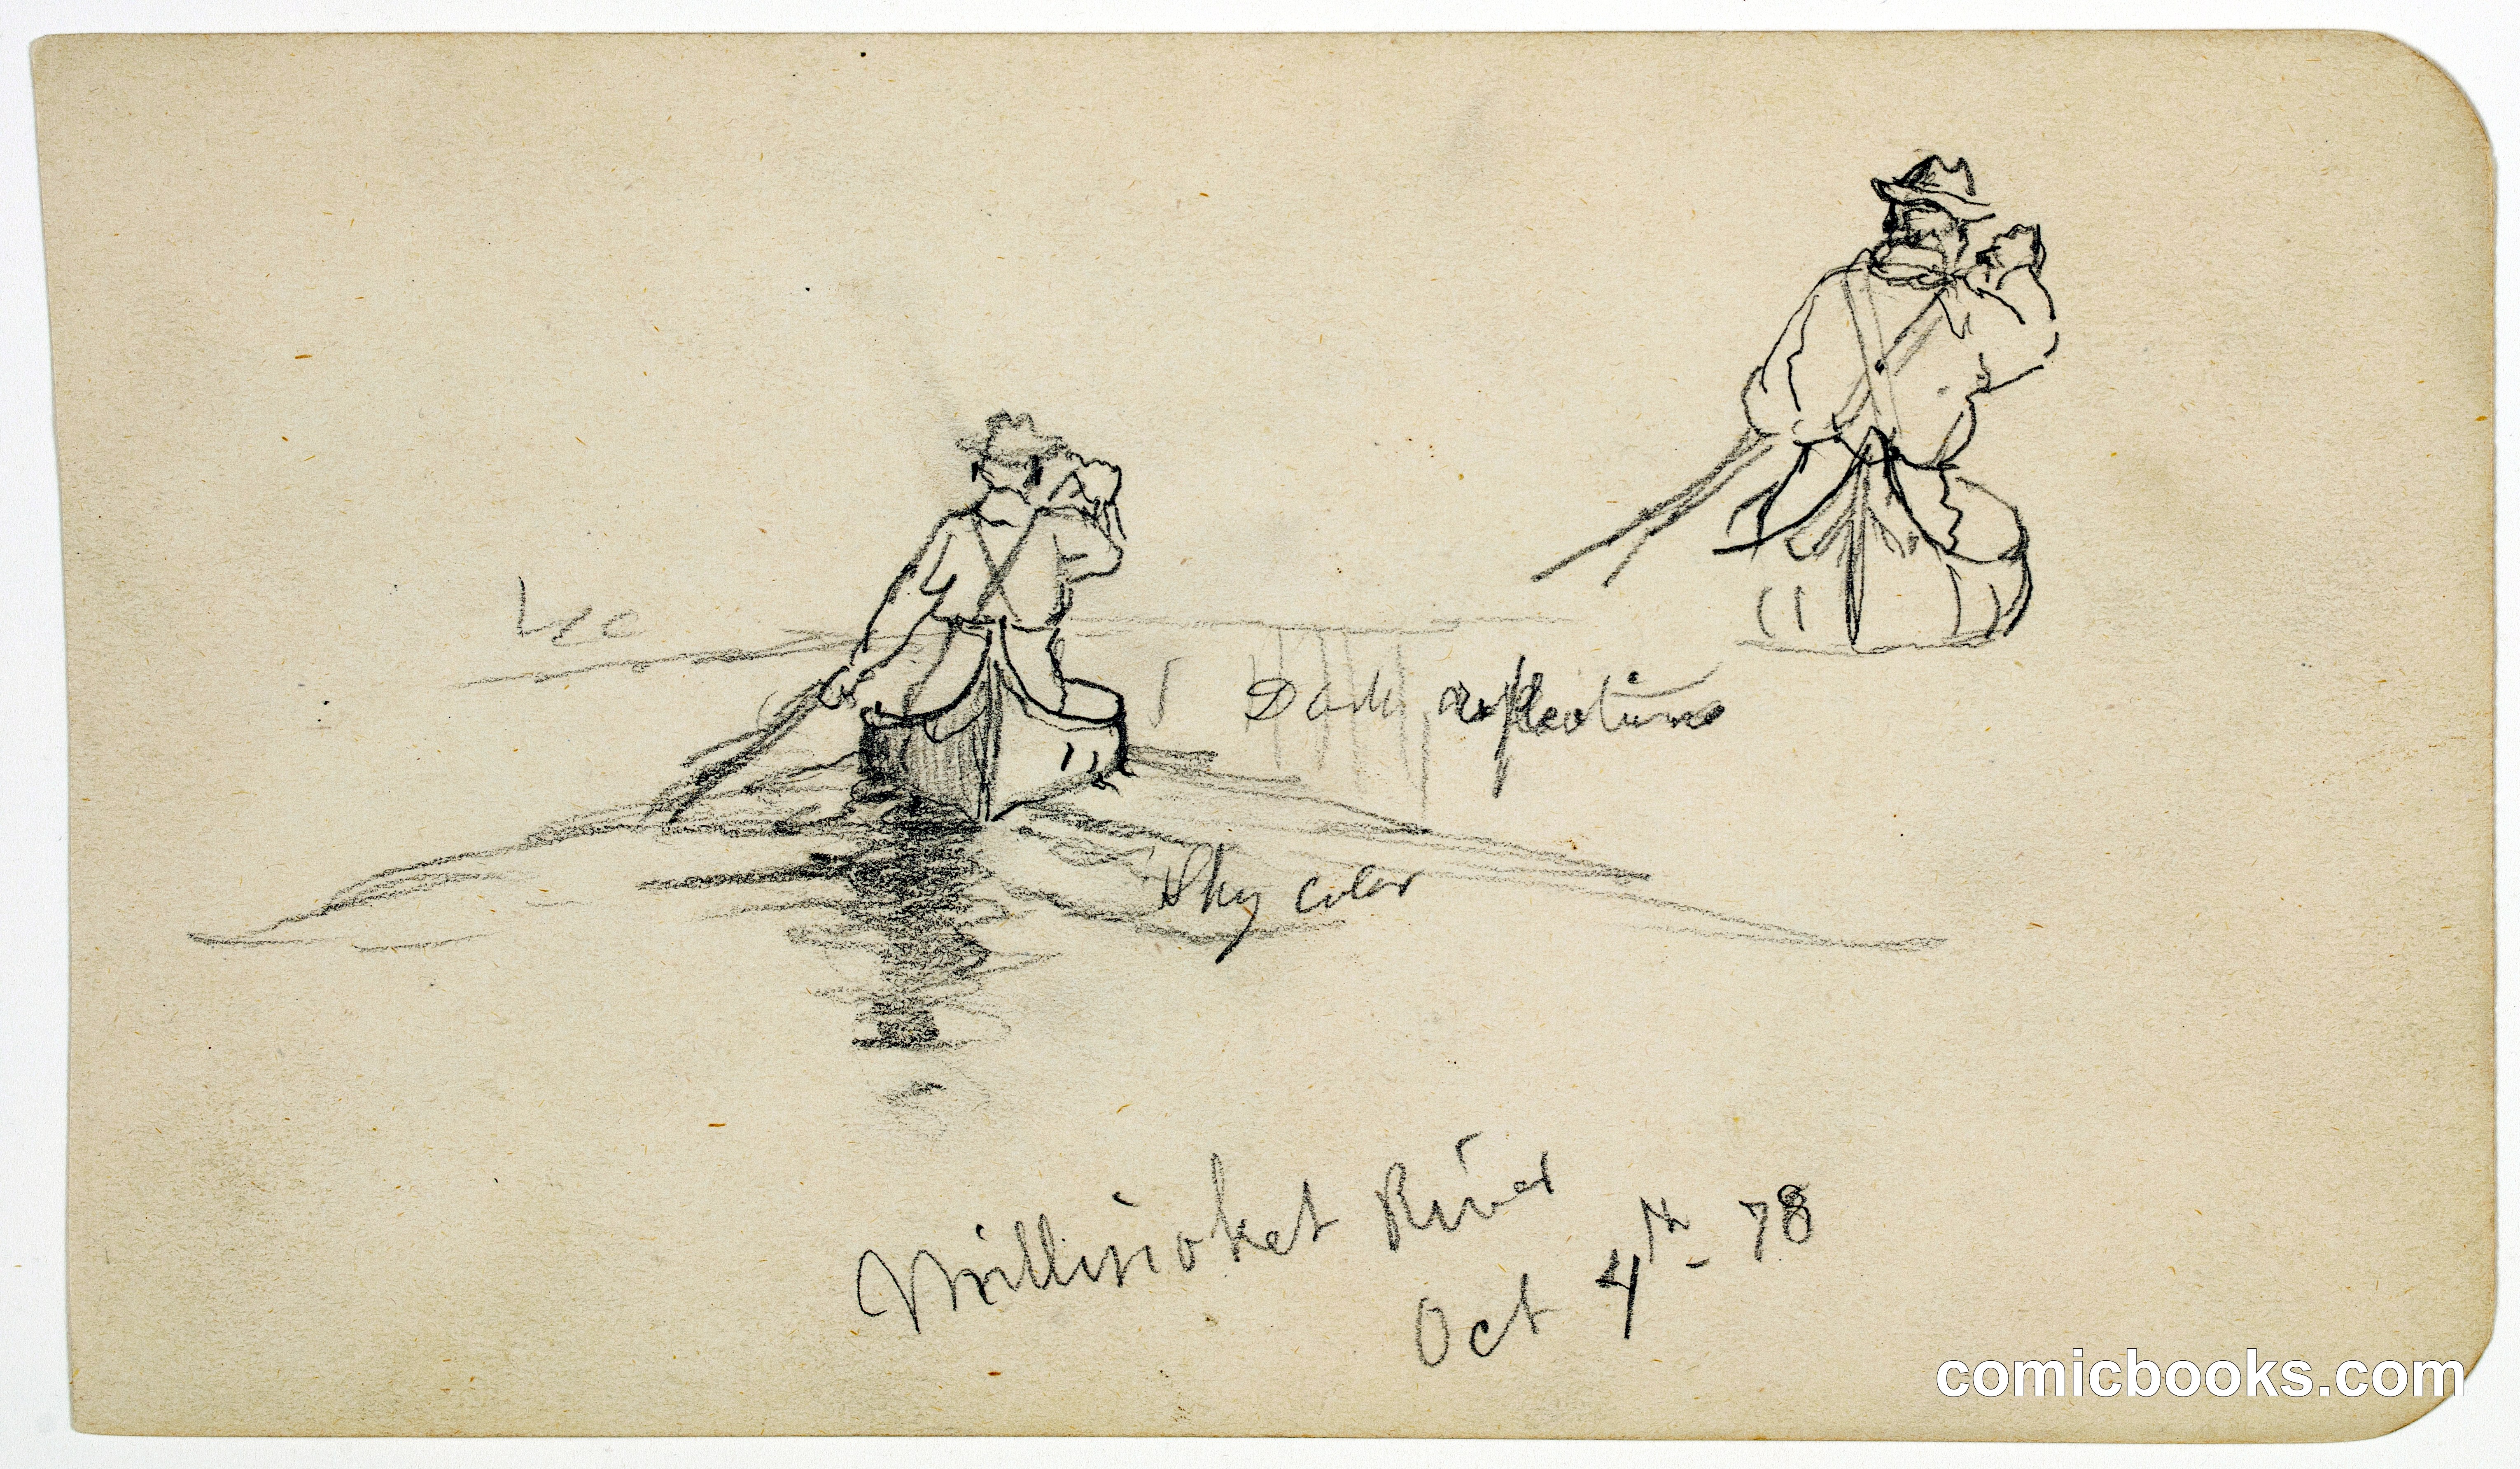 Dark reflections
Sky color
Millinoket River
Oct 4th 78
comicbooks.com